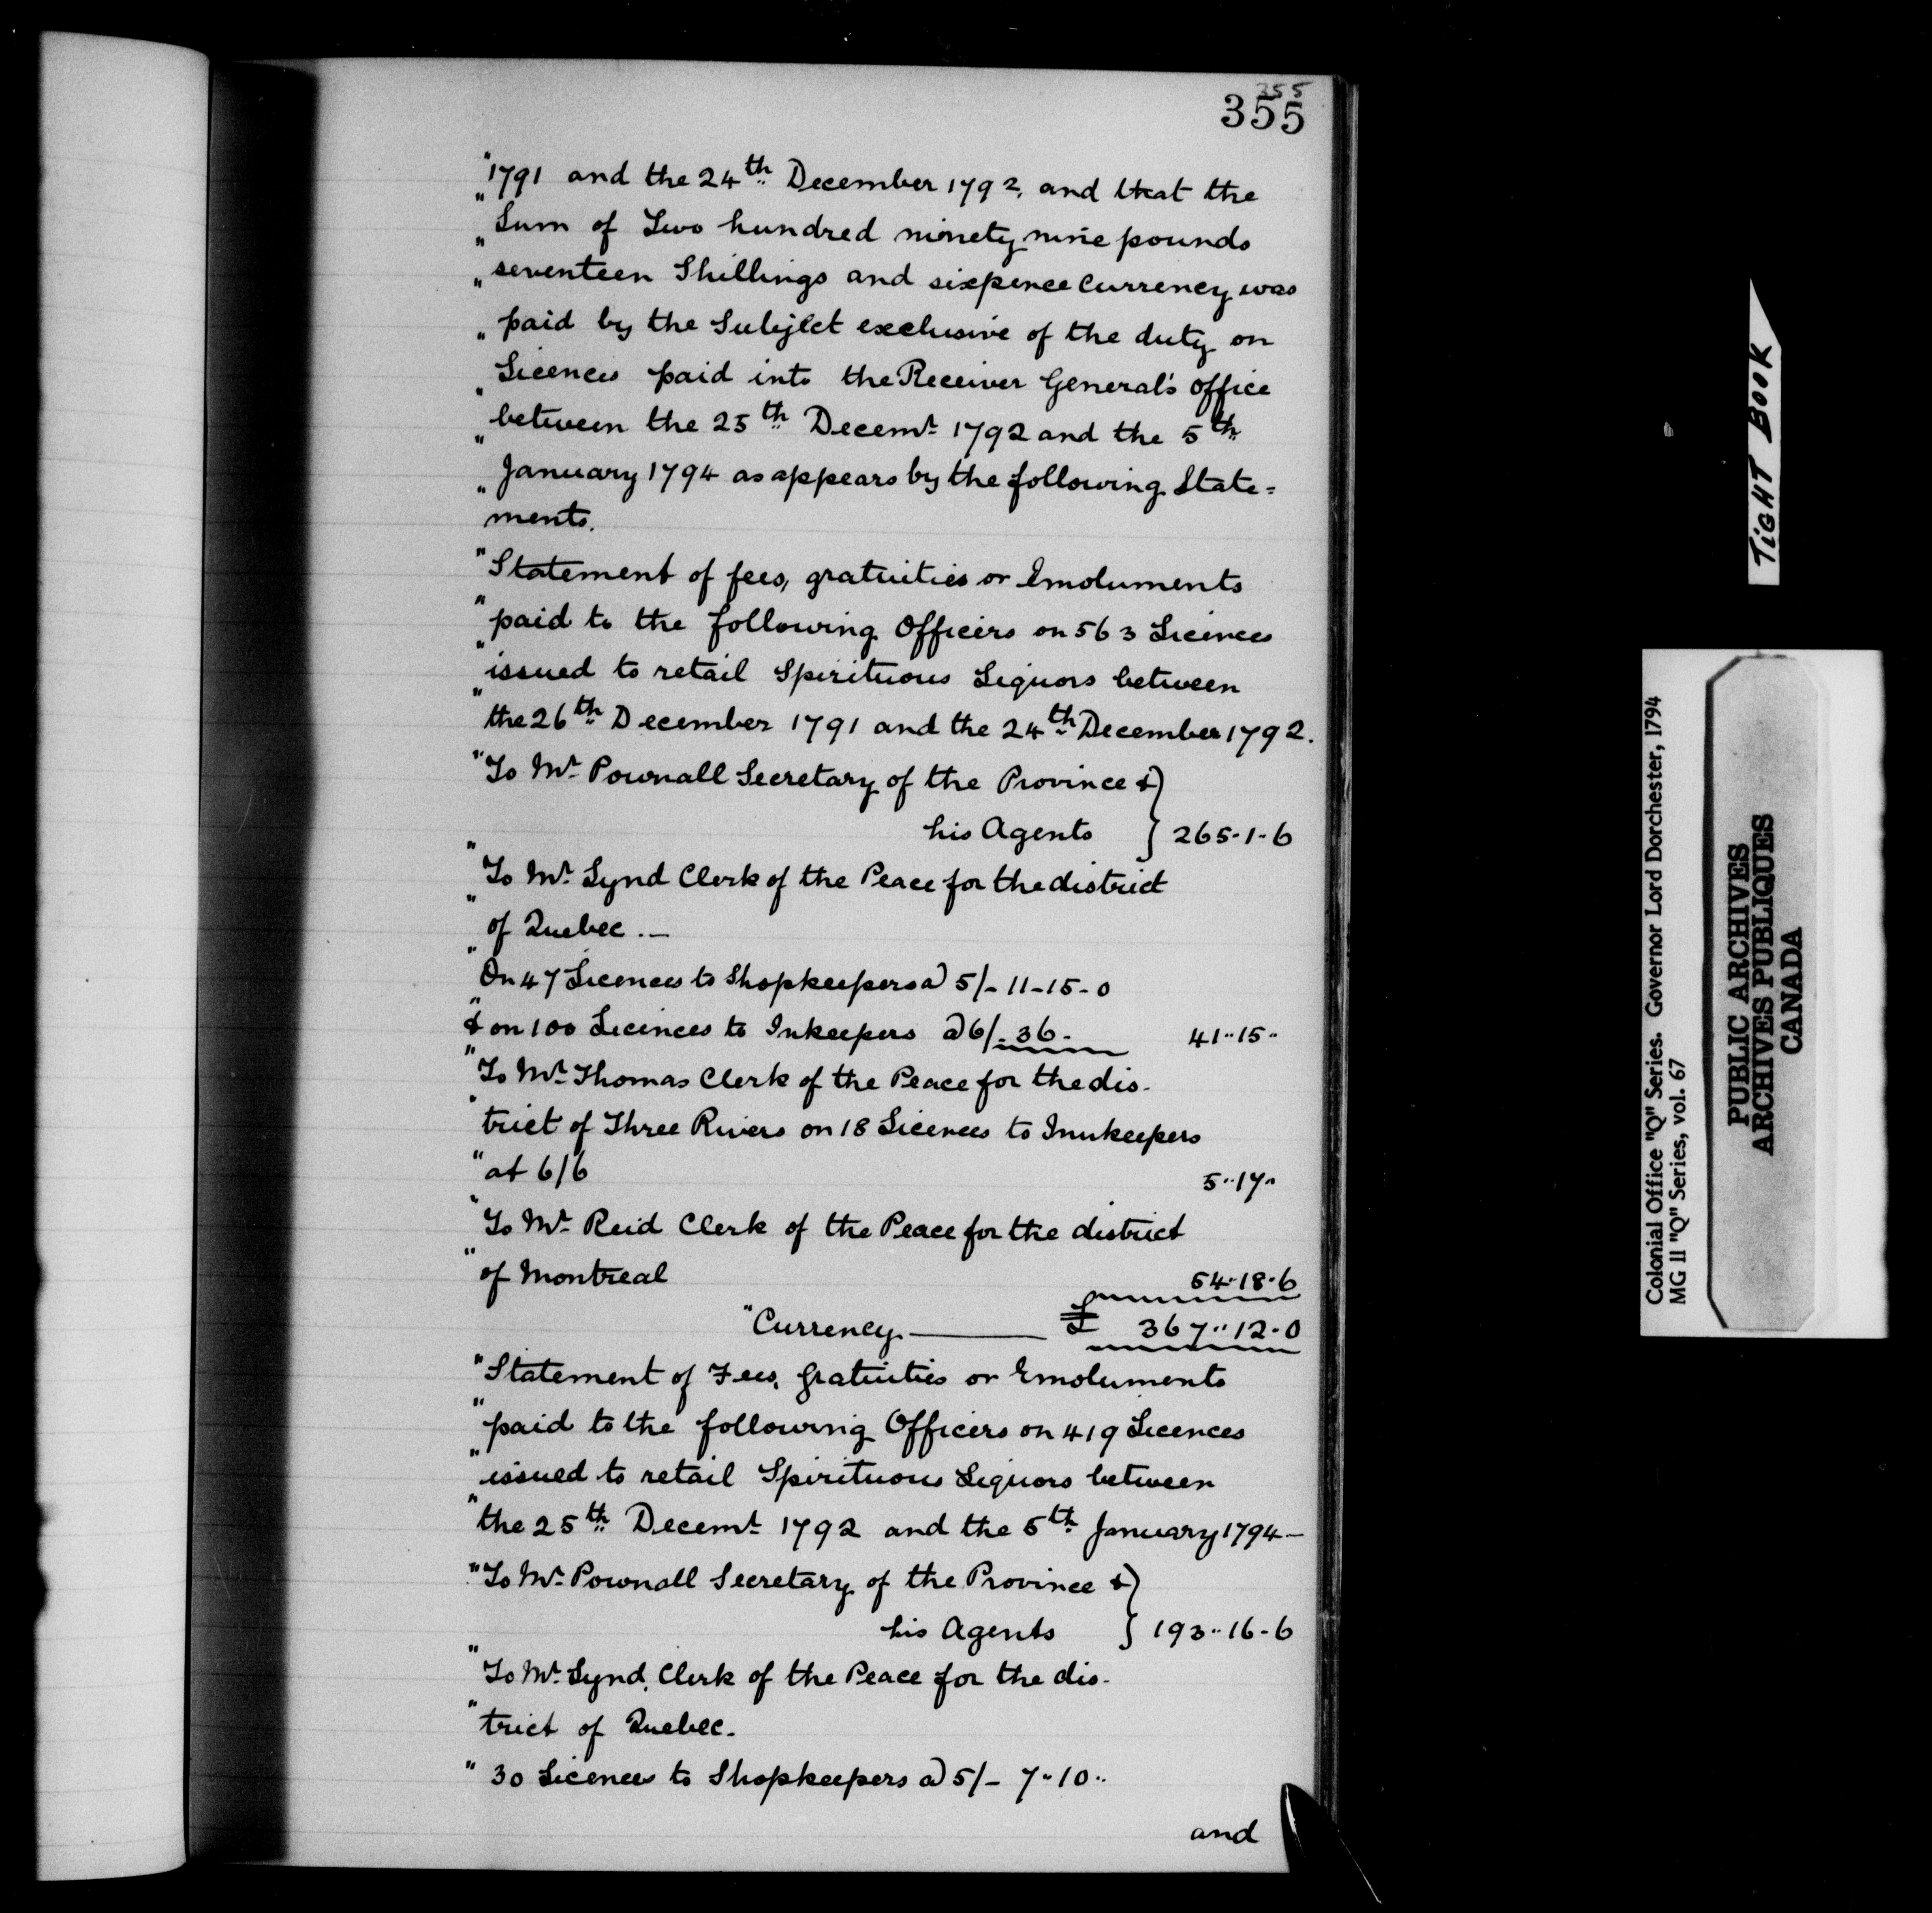 355
355
"1791 and the 24th December 1792, and that the
"Sum of Two hundred ninety nine pounds
"seventeen Shillings and sixpence Currency was
"paid by the Subject exclusive of the duty on
"Licences paid into the Receiver General's office
"between the 25th Decemr 1792 and the 5th
"January 1794 as appears by the following State=
ments.
"Statement of fees, gratuities or Emoluments
"paid to the following Officers on 563 Licences
"issued to retail Spirituous Liquors between
"the 26th December 1791 and the 24th December 1792.
"To Mr Pownall Secretary of the Province & }
his Agents } 265-1-6
"To Mr Lynd Clerk of the Peace for the district
"of Quebec.—
"On 47 Licences to Shopkeepers @ 5/- 11-15-0
"& on 100 Licences to Inkeepers @ 6/- 36- 41"15"
"To Mr Thomas Clerk of the Peace for the dis-
"trict of Three Rivers on 18 Licences to Innkeepers
"at 6/6 5"17"
"To Mr Reid Clerk of the Peace for the district
"of Montreal 54"18"6
"Currency —— £ 367"12-0
"Statement of Fees, gratuities or Emoluments
"paid to the following Officers on 419 Licences
"issued to retail Spirituous Liquors between
"the 25th Decemr 1792 and the 5th January 1794—
"To Mr Pownall Secretary of the Province & }
his Agents } 193"16-6
"To Mr Lynd, Clerk of the Peace for the dis-
"trict of Quebec-
"30 Licences to Shopkeepers @ 5/- 7"10"
and
TIGHT BOOK
Colonial Office "Q" Series. Governor Lord Dorchester, 1794
MG II "Q" Series, vol. 67
PUBLIC ARCHIVES
ARCHIVES PUBLIQUES
CANADA